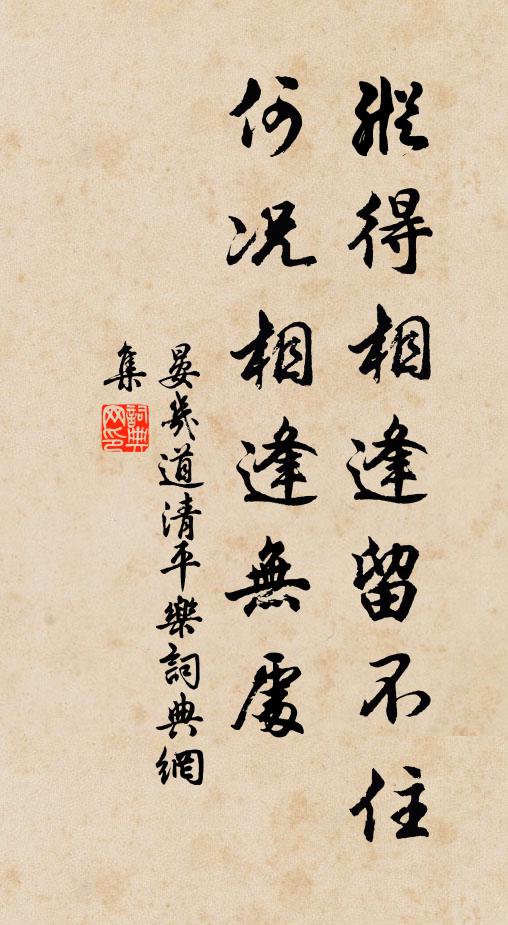 縱得相逢留不住
何況相逢無處
晏幾道清平樂詞典網
集
詞典
网印